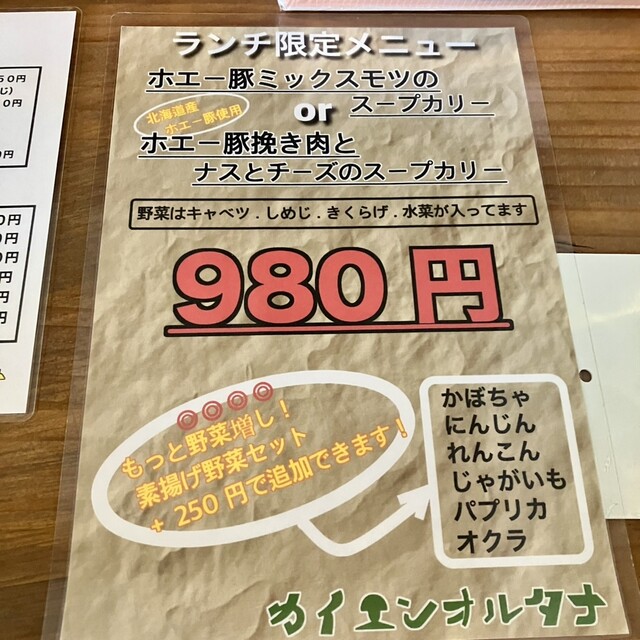 ランチ限定メニュー
ホエー豚ミックスモツの
スープカリー
or
北海道産
ホエー豚使用
ホエー豚挽き肉と
ナスとチーズのスープカリー
野菜はキャベツ . しめじ . きくらげ . 水菜が入ってます
980 円
◎◎◎◎
もっと野菜増し!
素揚げ野菜セット
+ 250 円で追加できます!
かぼちゃ
にんじん
れんこん
じゃがいも
パプリカ
オクラ
カイエンオルタナ